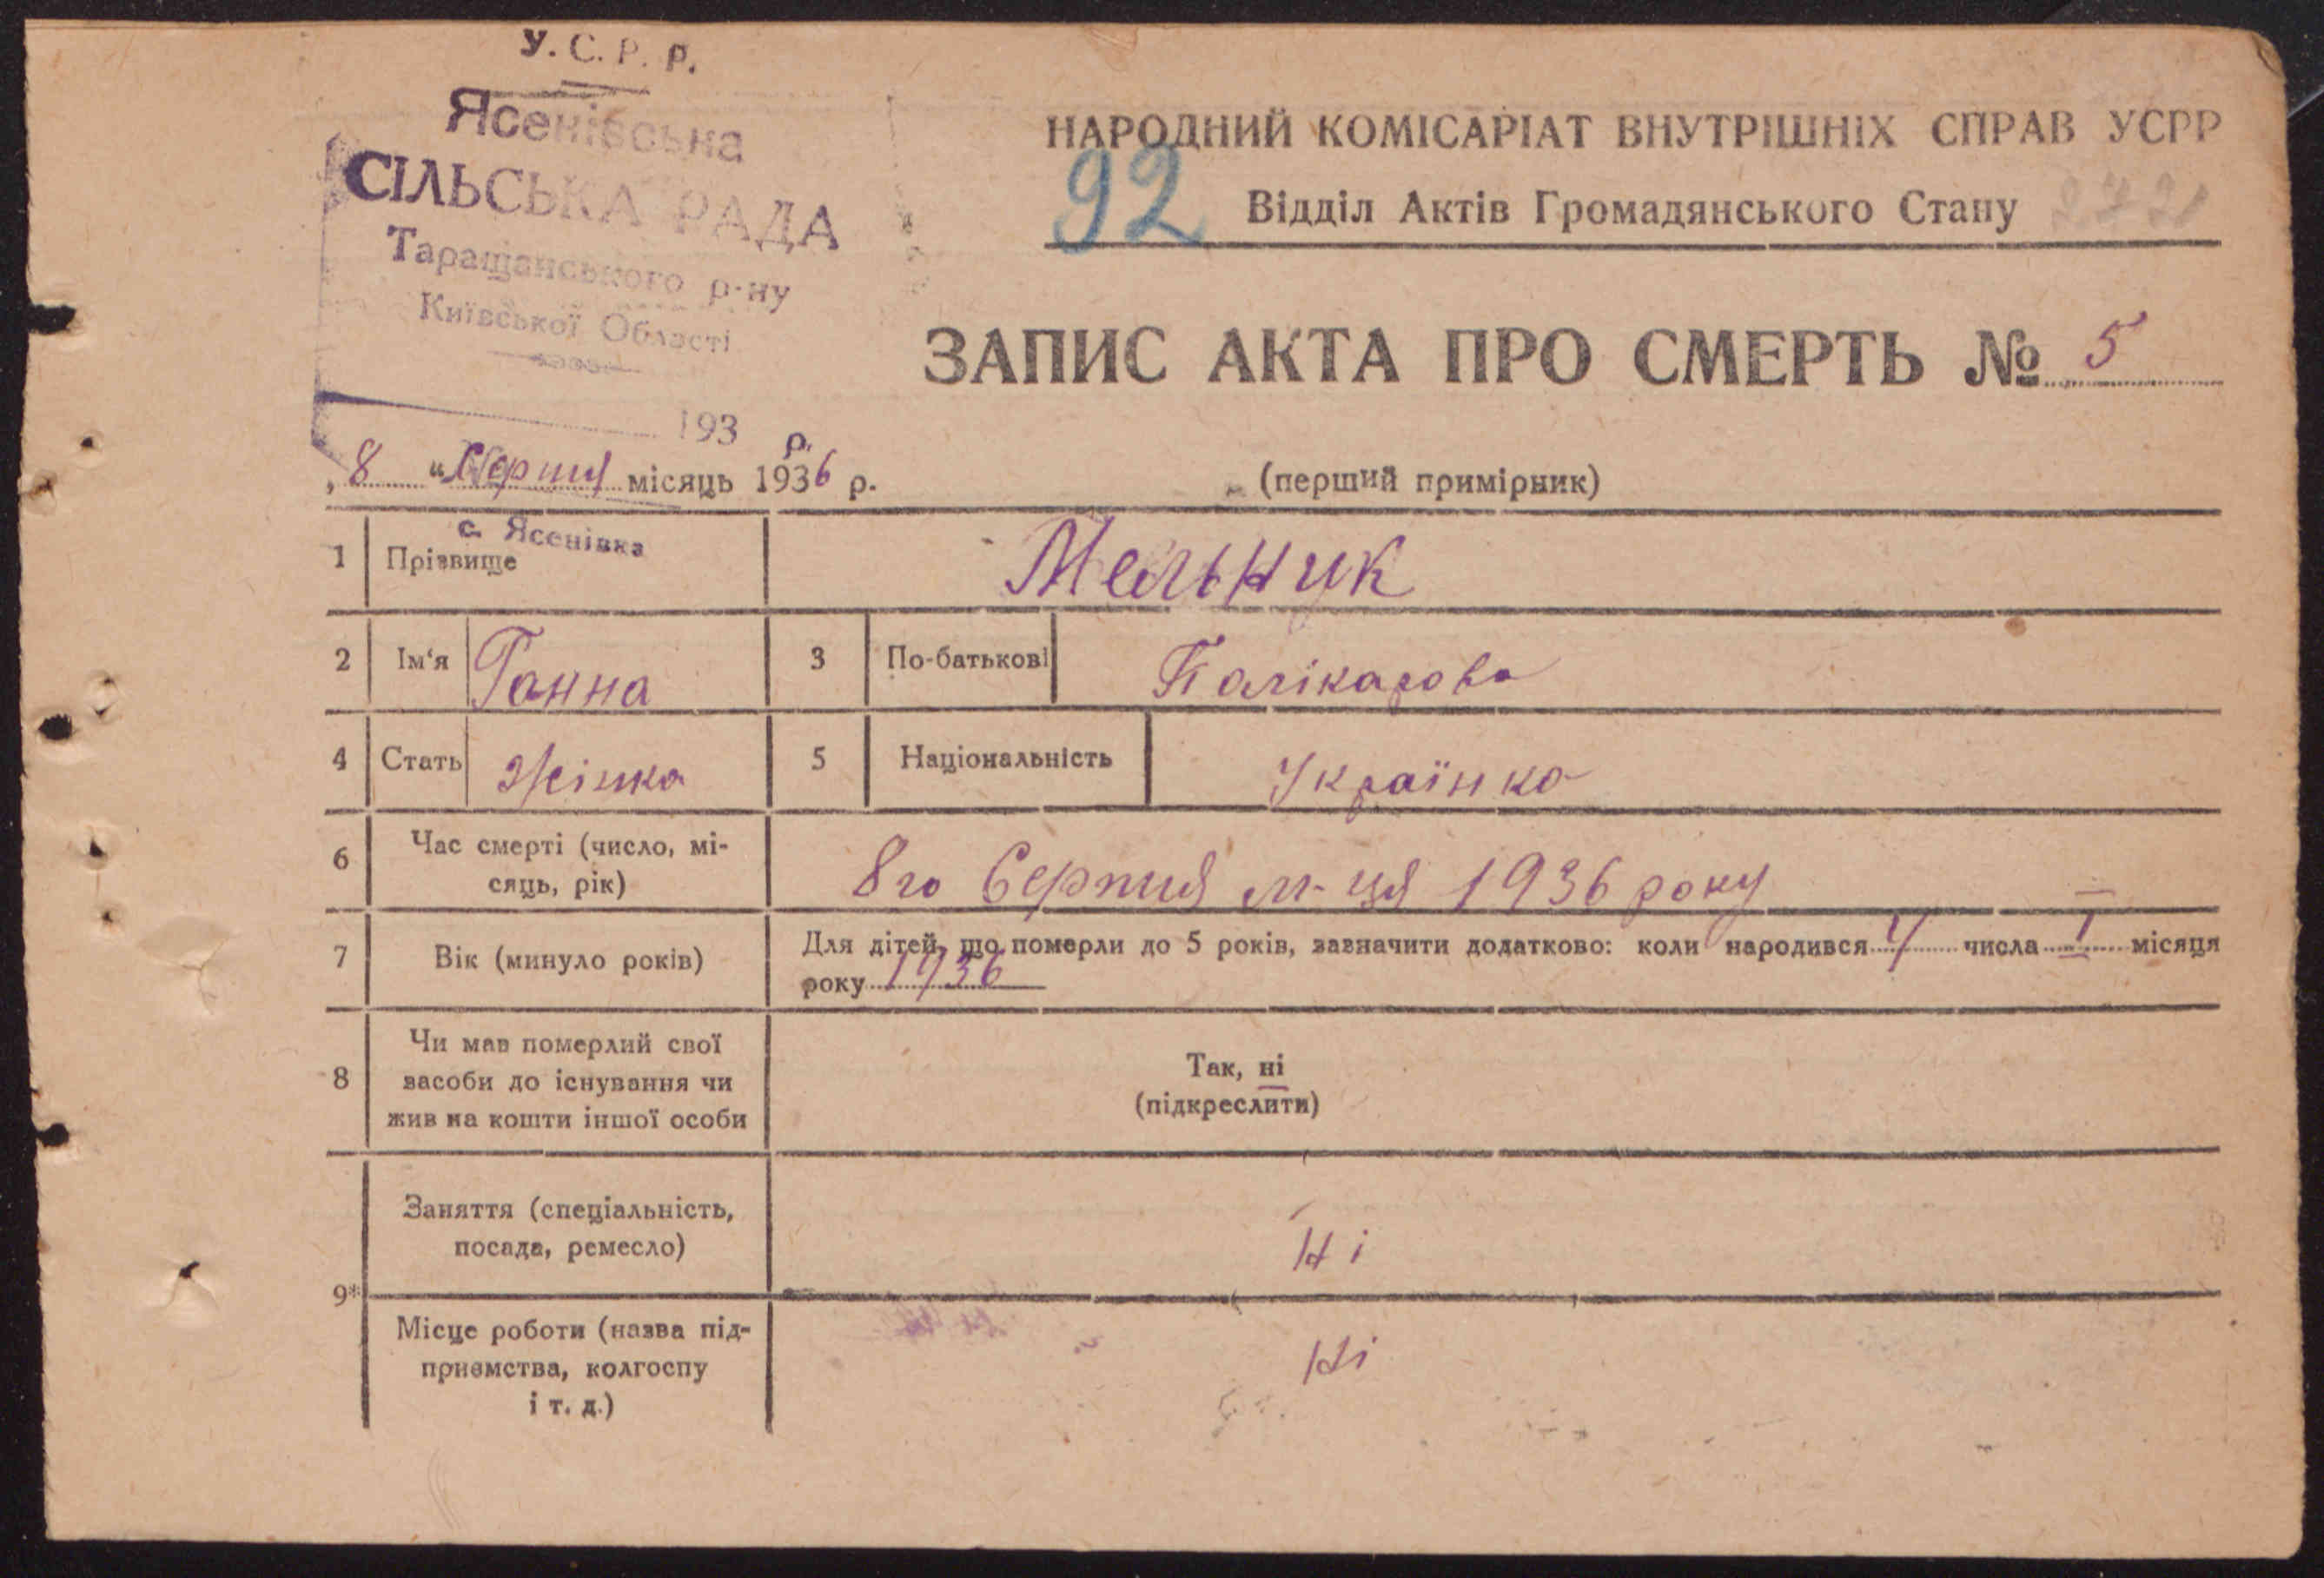 У. С. Р. Р.
Ясенівська
СІЛЬСЬКА РАДА
Таращанського р-ну
Київської Області
193 р.
НАРОДНИЙ КОМІСАРІАТ ВНУТРІШНІХ СПРАВ УСРР
92 Відділ Актів Громадянського Стану
ЗАПИС АКТА ПРО СМЕРТЬ № 5
„8“ Серпня місяць 1936 р.
(перший примірник)
с. Ясенівка
1 Прізвище Мельник
2 Ім‘я Ганна 3 По-батькові Палікарова
4 Стать Жінка 5 Національність Українка
6 Час смерті (число, мі-
сяць, рік)
8го Серпня м-ця 1936 року
7 Вік (минуло років)
Для дітей, що померли до 5 років, зазначити додатково: коли народився 4 числа I місяця
року 1936
8 Чи мав померлий свої
засоби до існування чи
жив на кошти іншої особи
Так, ні
(підкреслити)
9*
Заняття (спеціальність,
посада, ремесло)
Ні
Місце роботи (назва під-
приємства, колгоспу
і т. д.)
Ні